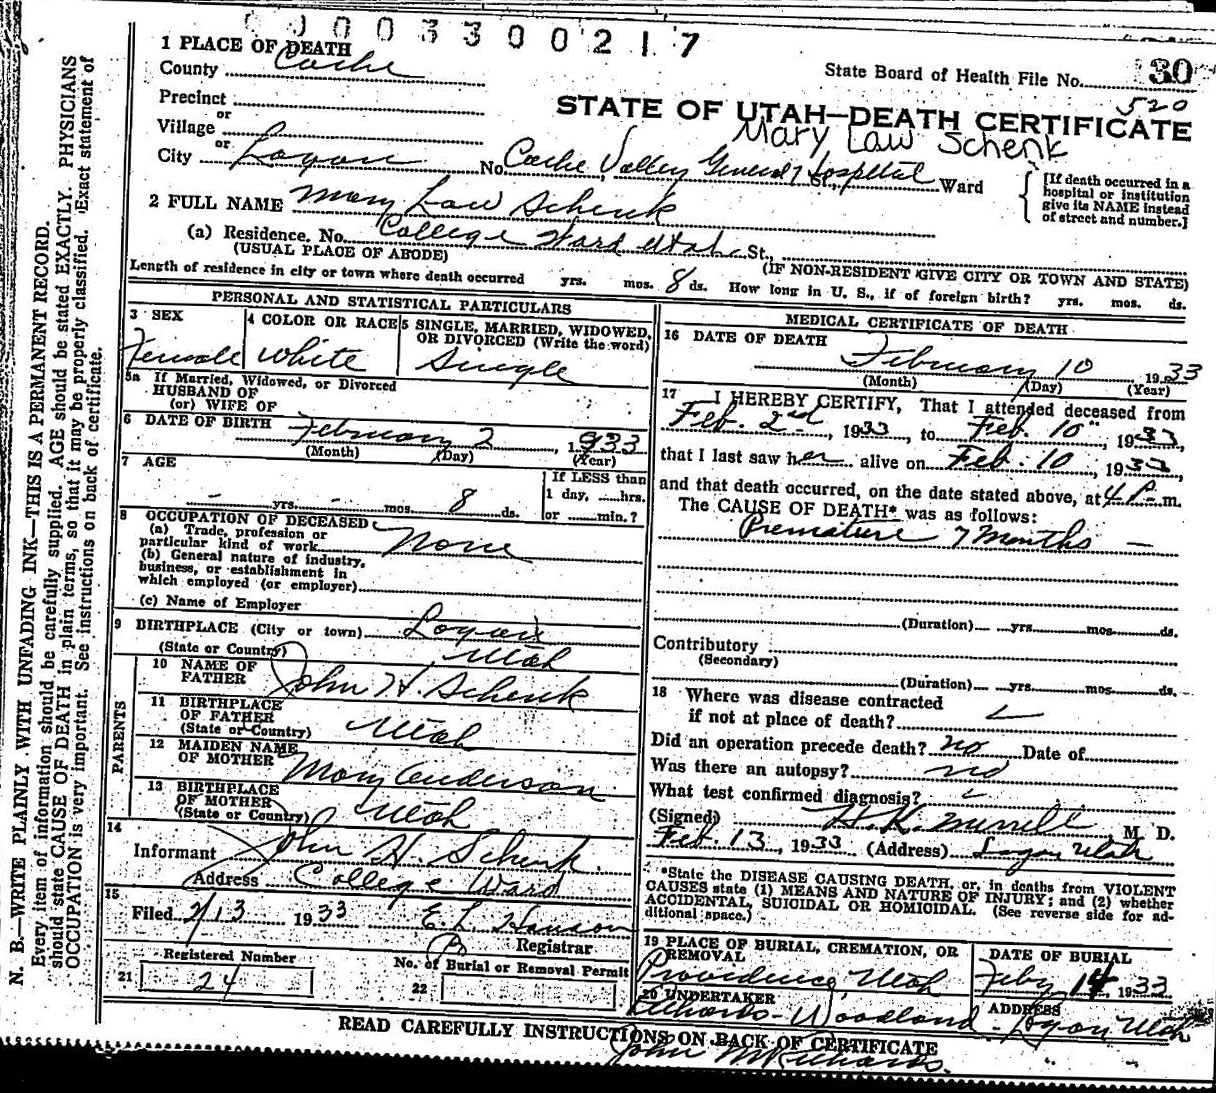 0000330021 7
1 PLACE OF DEATH
County Cache
State Board of Health File No. 30
520
Precinct
or
Village
or
City Logan
STATE OF UTAH—DEATH CERTIFICATE
Mary Law Schenk
No. Cache Valley General Hospital St., Ward
[If death occurred in a hospital or institution give its NAME instead of street and number.]
2 FULL NAME Mary Law Schenk
(a) Residence. No. College Ward Utah St.,
(USUAL PLACE OF ABODE) (IF NON-RESIDENT GIVE CITY OR TOWN AND STATE)
Length of residence in city or town where death occurred yrs. mos. 8 ds. How long in U. S., if of foreign birth? yrs. mos. ds.
PERSONAL AND STATISTICAL PARTICULARS
3 SEX Female
4 COLOR OR RACE White
5 SINGLE, MARRIED, WIDOWED, OR DIVORCED (Write the word) Single
5a If Married, Widowed, or Divorced
HUSBAND OF
(or) WIFE OF
6 DATE OF BIRTH February 2, 1933
(Month) (Day) (Year)
7 AGE
- yrs. - mos. 8 ds.
If LESS than
1 day, ......hrs.
or ........min.?
8 OCCUPATION OF DECEASED
(a) Trade, profession or
particular kind of work None
(b) General nature of industry,
business, or establishment in
which employed (or employer)
(c) Name of Employer
9 BIRTHPLACE (City or town) Logan
(State or Country) Utah
PARENTS
10 NAME OF
FATHER John H. Schenk
11 BIRTHPLACE
OF FATHER
(State or Country) Utah
12 MAIDEN NAME
OF MOTHER Mary Anderson
13 BIRTHPLACE
OF MOTHER
(State or Country) Utah
14
Informant John H. Schenk.
Address College Ward
15
Filed 2/13 1933 E L Hanson
Registrar
Registered Number
21 24
No. of Burial or Removal Permit
22
MEDICAL CERTIFICATE OF DEATH
16 DATE OF DEATH
February 10 1933
(Month) (Day) (Year)
17 I HEREBY CERTIFY, That I attended deceased from
Feb. 2nd, 1933, to Feb. 10", 1933,
that I last saw her alive on Feb. 10, 1933
and that death occurred, on the date stated above, at 4 P. m.
The CAUSE OF DEATH* was as follows:
Premature 7 Months —
(Duration) yrs. mos. ds.
Contributory
(Secondary)
(Duration) yrs. mos. ds.
18 Where was disease contracted
if not at place of death?
Did an operation precede death? no Date of
Was there an autopsy? no
What test confirmed diagnosis?
(Signed) H. K. Merrell, M. D.
Feb. 13, 1933 (Address) Logan Utah
*State the DISEASE CAUSING DEATH, or, in deaths from VIOLENT
CAUSES state (1) MEANS AND NATURE OF INJURY; and (2) whether
ACCIDENTAL, SUICIDAL OR HOMICIDAL. (See reverse side for ad-
ditional space.)
19 PLACE OF BURIAL, CREMATION, OR
REMOVAL
Providence, Utah
DATE OF BURIAL
Feby 14, 1933
20 UNDERTAKER
Woodland
ADDRESS
Logan Utah
READ CAREFULLY INSTRUCTIONS ON BACK OF CERTIFICATE
John
N. B.—WRITE PLAINLY WITH UNFADING INK—THIS IS A PERMANENT RECORD.
Every item of information should be carefully supplied. AGE should be stated EXACTLY. PHYSICIANS
should state CAUSE OF DEATH in plain terms, so that it may be properly classified. Exact statement of
OCCUPATION is very important. See instructions on back of certificate.